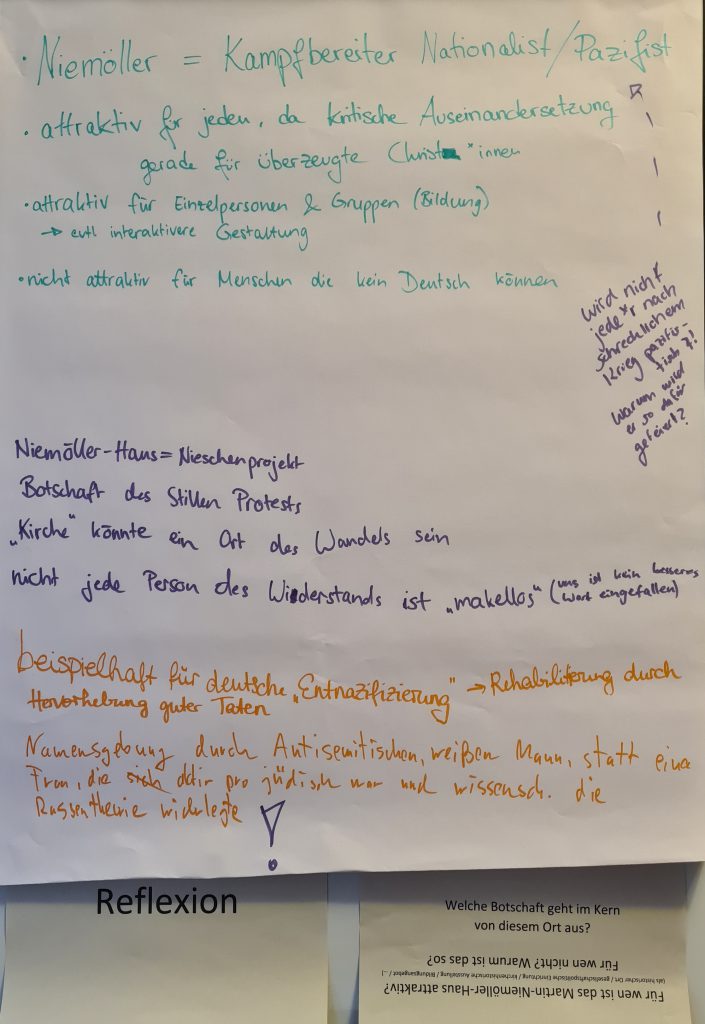 · Niemöller = Kampfbereiter Nationalist/Pazifist
· attraktiv für jeden, da kritische Auseinandersetzung
gerade für überzeugte Christ*innen
· attraktiv für Einzelpersonen & Gruppen (Bildung)
→ evtl interaktivere Gestaltung
· nicht attraktiv für Menschen die kein Deutsch können
wird nicht
jede*r nach
schrecklichem
Krieg pazifis-
tisch?!
Warum wird
er so dafür
gefeiert?
Niemöller-Haus = Nieschenprojekt
Botschaft des Stillen Protests
„Kirche" könnte ein Ort des Wandels sein
nicht jede Person des Widerstands ist „makellos" (uns ist kein besseres
Wort eingefallen)
beispielhaft für deutsche „Entnazifizierung" → Rehabilitierung durch
Hervorhebung guter Taten
Namensgebung durch Antisemitischen, weißen Mann, statt eine
Frau, die sich pro jüdisch war und wissensch. die
Rassentheorie widerlegte !
Reflexion
Welche Botschaft geht im Kern
von diesem Ort aus?
Für wen ist das Martin-Niemöller-Haus attraktiv?
(als historischer Ort / gesellschaftspolitische Einrichtung / kirchenhistorische Ausstellung / Bildungsangebot / ...)
Für wen nicht? Warum ist das so?